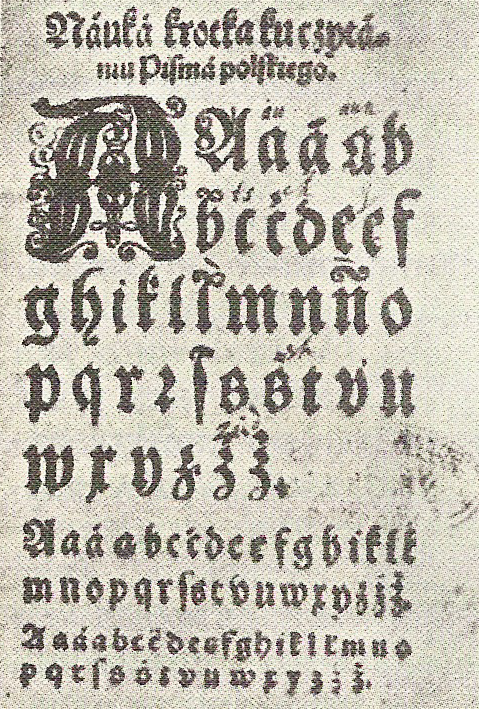 Náuká krotka ku czytá⸗
niu Piſmá polſkiego.
A A a á ą b
b́ c ć d e ę f
g h i k l ł m n ń o
p q r ꝛ ſ s ś t v u
w x y z ź ż.
A a á ą b c ć d e ę f g h i k l ł
m n o p q r ſ s t v u w x y z ź ż.
A a á ą b c ć d e ę f g h i k l ł m n o
p q r ſ s ś t v u w x y z ź ż.